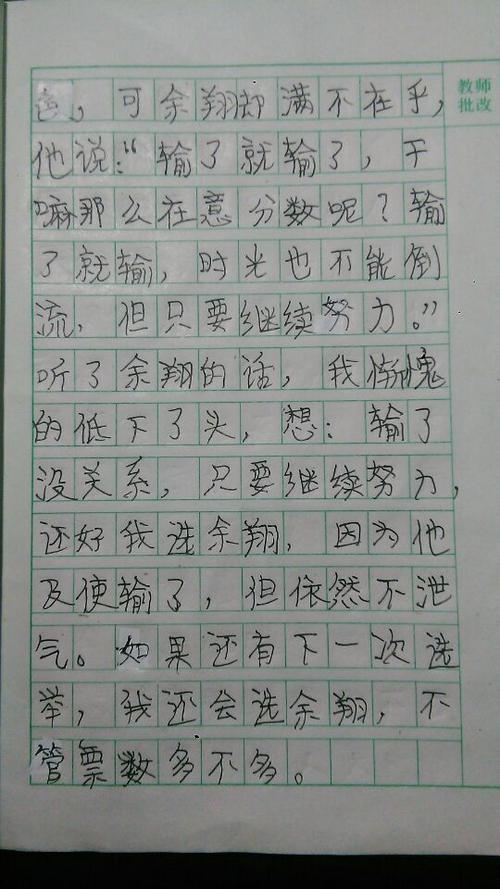 色，可余翔却满不在乎，
教师
批改
他说：“输了就输了，干
嘛那么在意分数呢？输
了就输，时光也不能倒
流，但只要继续努力。”
听了余翔的话，我惭愧
的低下了头，想：输了
没关系，只要继续努力，
还好我选余翔，因为他
及使输了，但依然不泄
气。如果还有下一次选
举，我还会选余翔，不
管票数多不多。